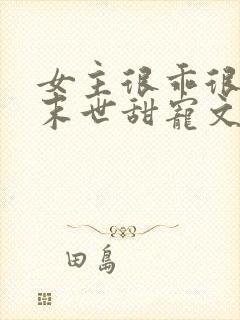 女主很乖很
末世甜寵文
田島